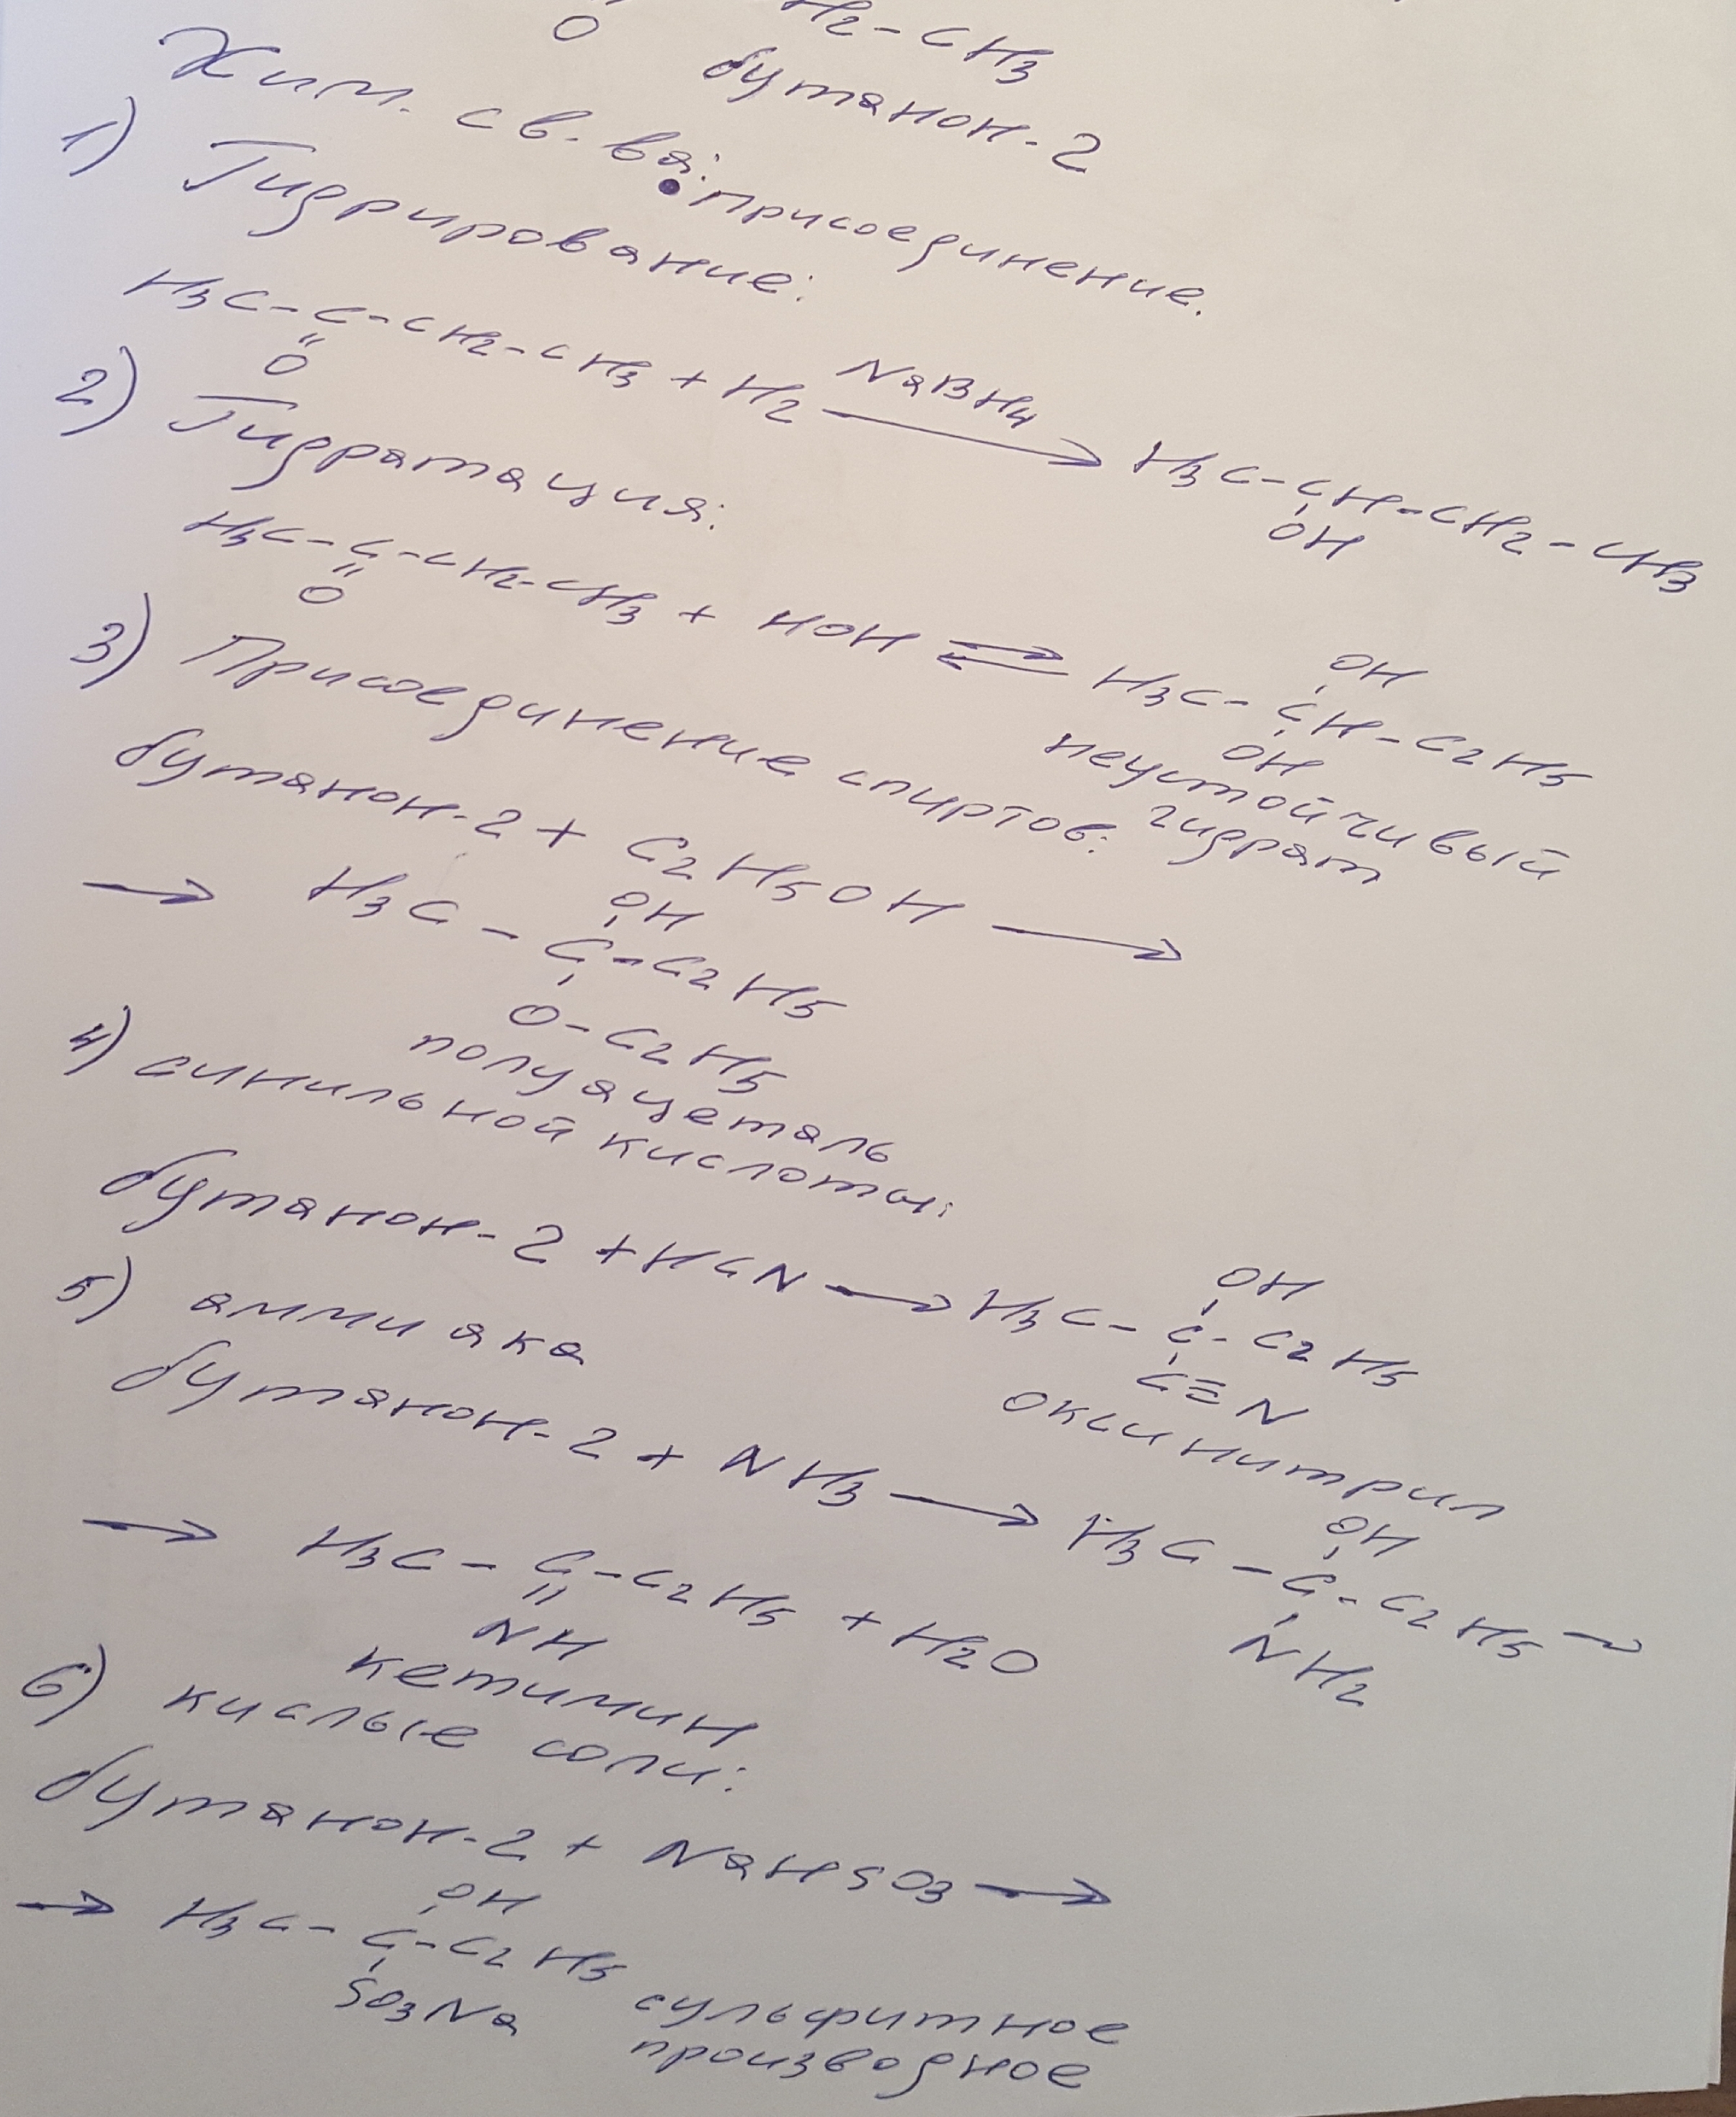 O
H2-CH3
бутанон-2
Хим. св-ва: присоединение.
1) Гидрирование:
H3C-C-CH2-CH3 + H2 NaBH4 → H3C-CH-CH2-CH3
"
O
OH
2) Гидратация:
H3C-C-CH2-CH3 + HOH ⇄ H3C-CH-C2H5
"
O
OH
OH
неустойчивый
гидрат
3) Присоединение спиртов:
бутанон-2 + C2H5OH →
→ H3C-C-C2H5
OH
O-C2H5
полуацеталь
4) синильной кислоты:
бутанон-2 + HCN → H3C-C-C2H5
OH
C≡N
оксинитрил
5) аммиака
бутанон-2 + NH3 → H3C-C-C2H5 →
OH
NH2
→ H3C-C-C2H5 + H2O
"
NH
кетимин
6) кислые соли:
бутанон-2 + NaHSO3 →
→ H3C-C-C2H5
OH
SO3Na
сульфитное
производное